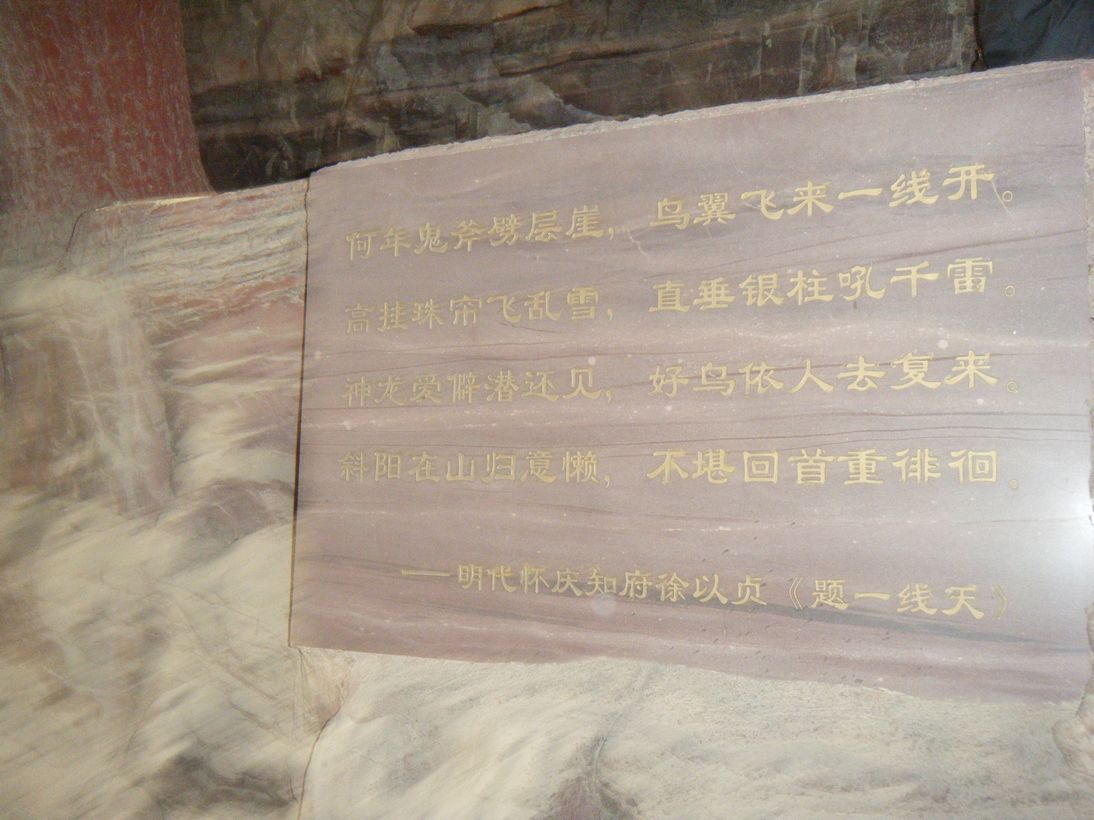 何年鬼斧劈层崖，鸟翼飞来一线开。
高挂珠帘飞乱雪，直垂银柱吼千雷。
神龙爱僻潜还见，好鸟依人去复来。
斜阳在山归意懒，不堪回首重徘徊。
——明代怀庆知府徐以贞《题一线天》